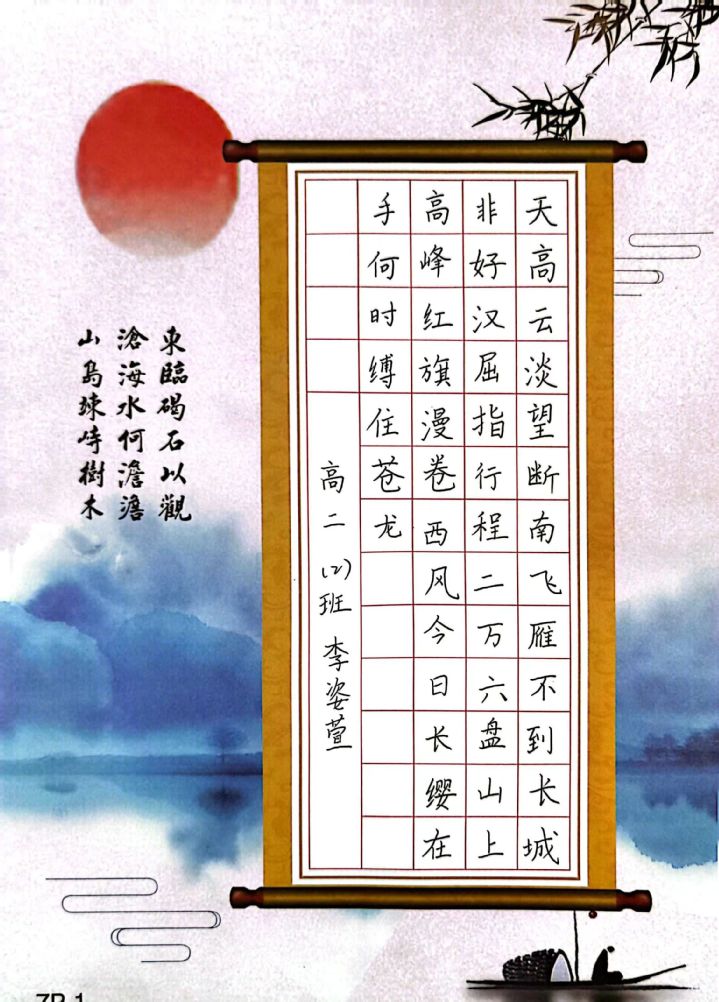 天高云淡望断南飞雁不到长城
非好汉屈指行程二万六盘山上
高峰红旗漫卷西风今日长缨在
手何时缚住苍龙
高二(2)班 李姿萱
東臨碣石以觀
滄海水何澹澹
山島竦峙樹木